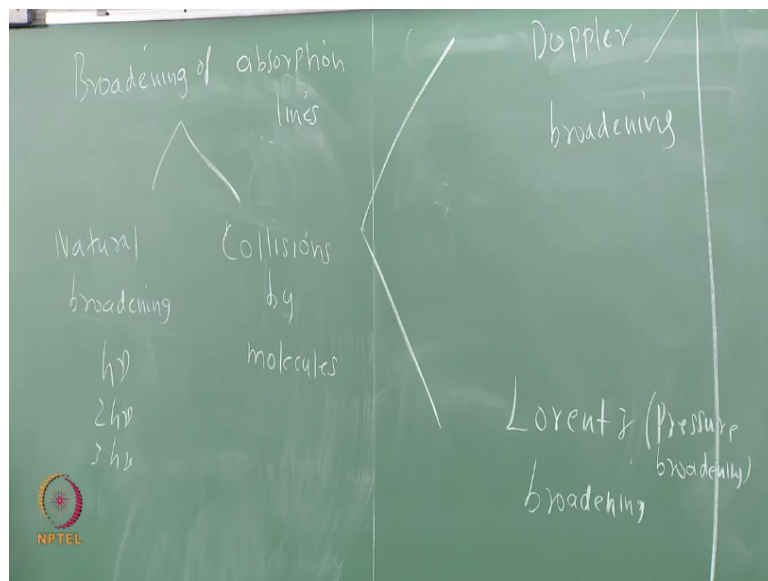 Broadening of absorption
lines
Natural
broadening
hν
2hν
3hν
Collisions
by
molecules
Doppler
broadening
Lorentz (Pressure
broadening)
broadening
NPTEL